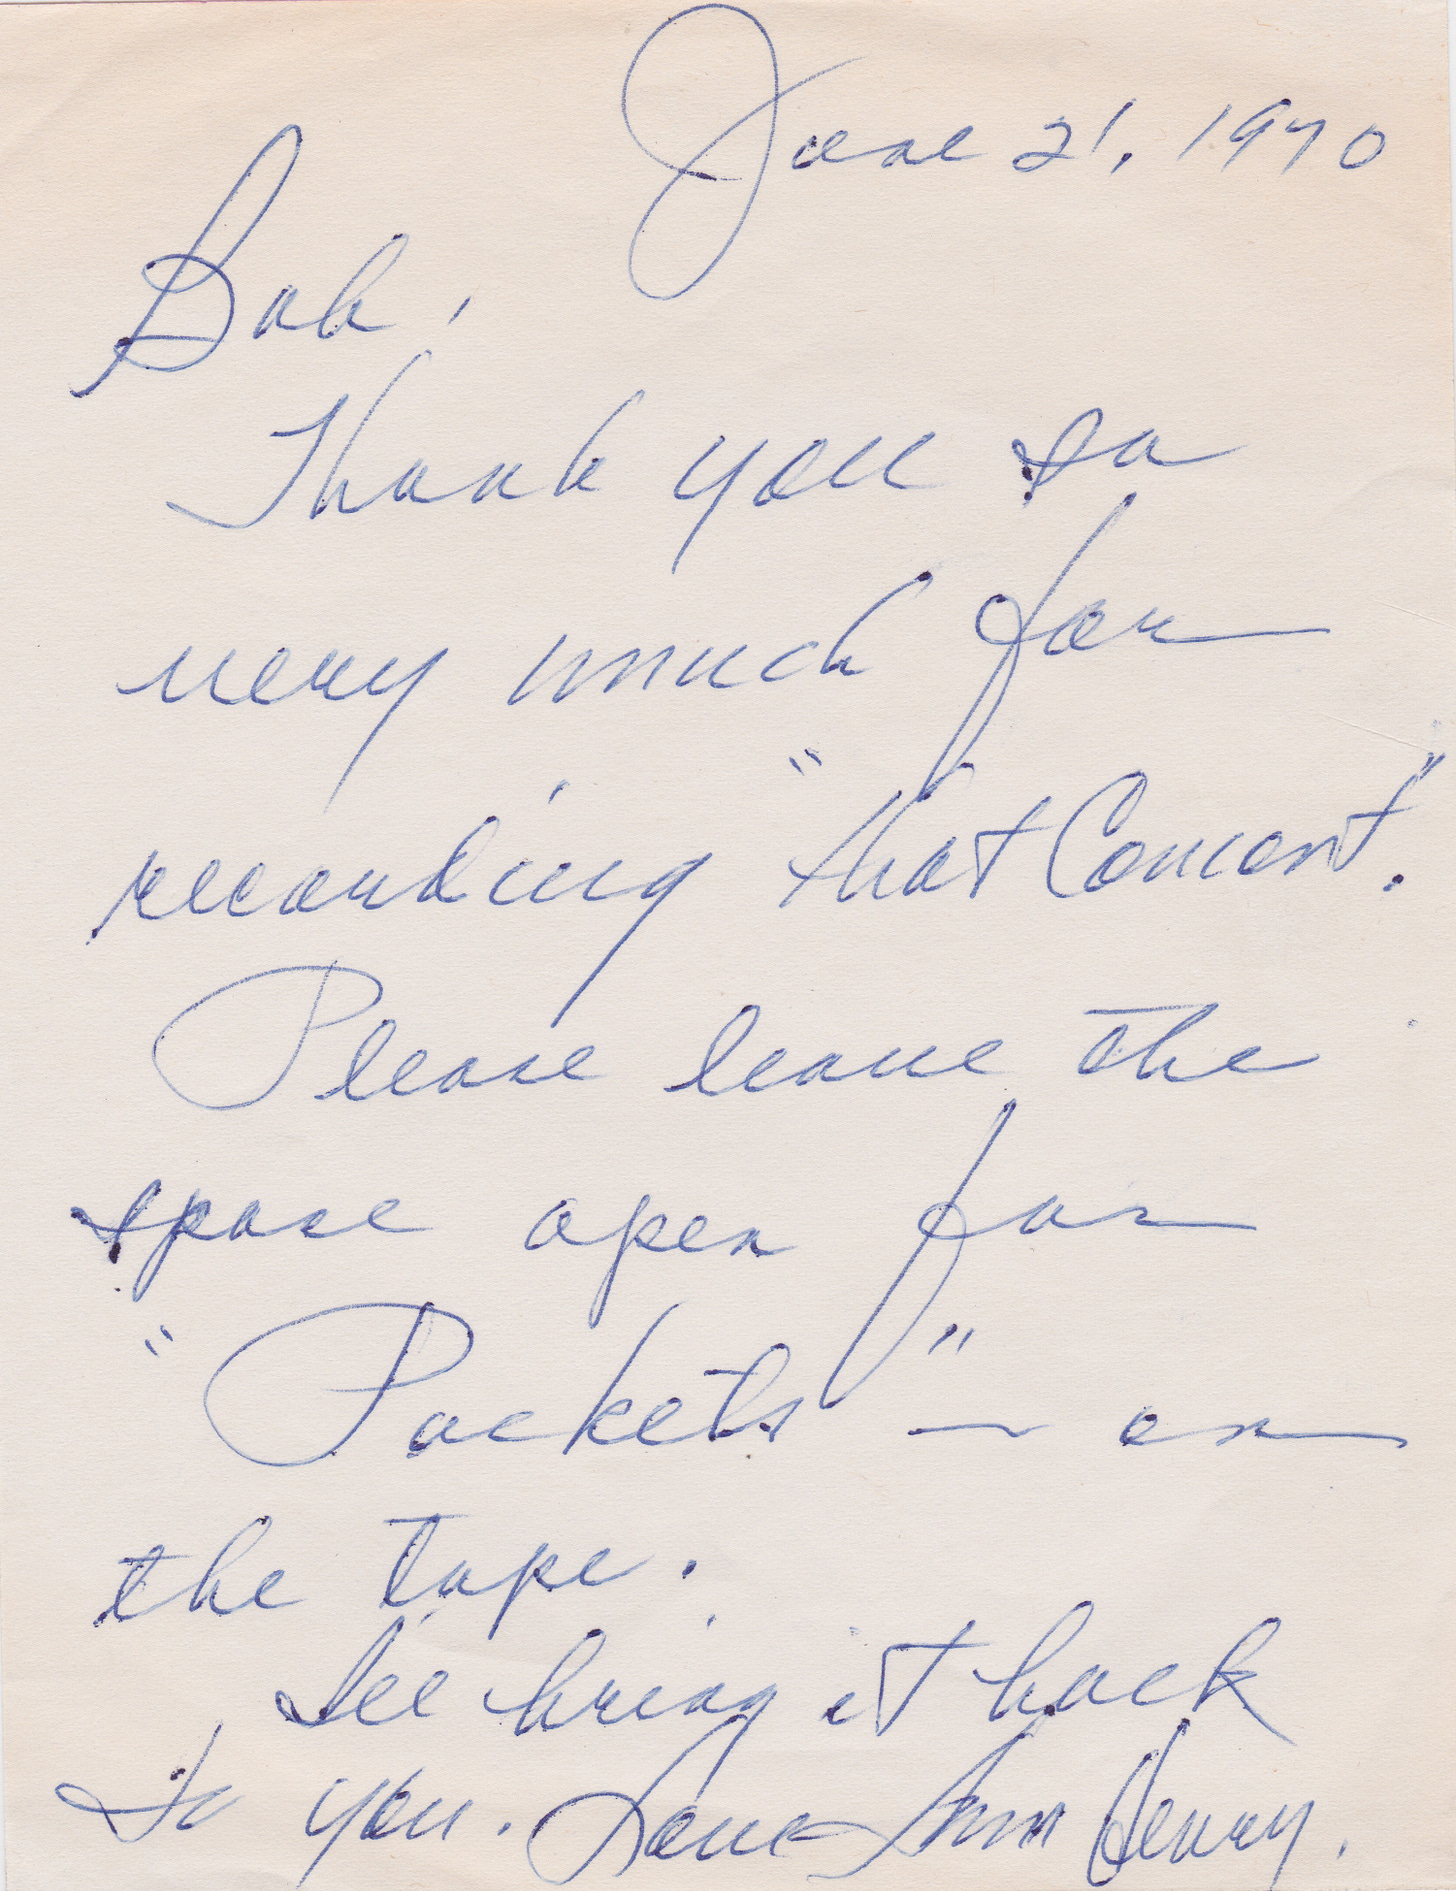 June 21, 1970
Bob,
Thank you so
very much for
recording "that Concert".
Please leave the
space open for
"Pockets" — on
the tape.
I'll bring it back
to you. Love Ann Henry.